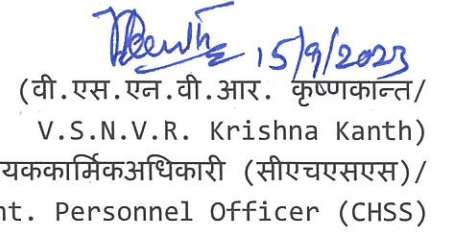 15/9/2023
(वी.एस.एन.वी.आर. कृष्णकान्त/
V.S.N.V.R. Krishna Kanth)
यककार्मिकअधिकारी (सीएचएसएस)/
nt. Personnel Officer (CHSS)